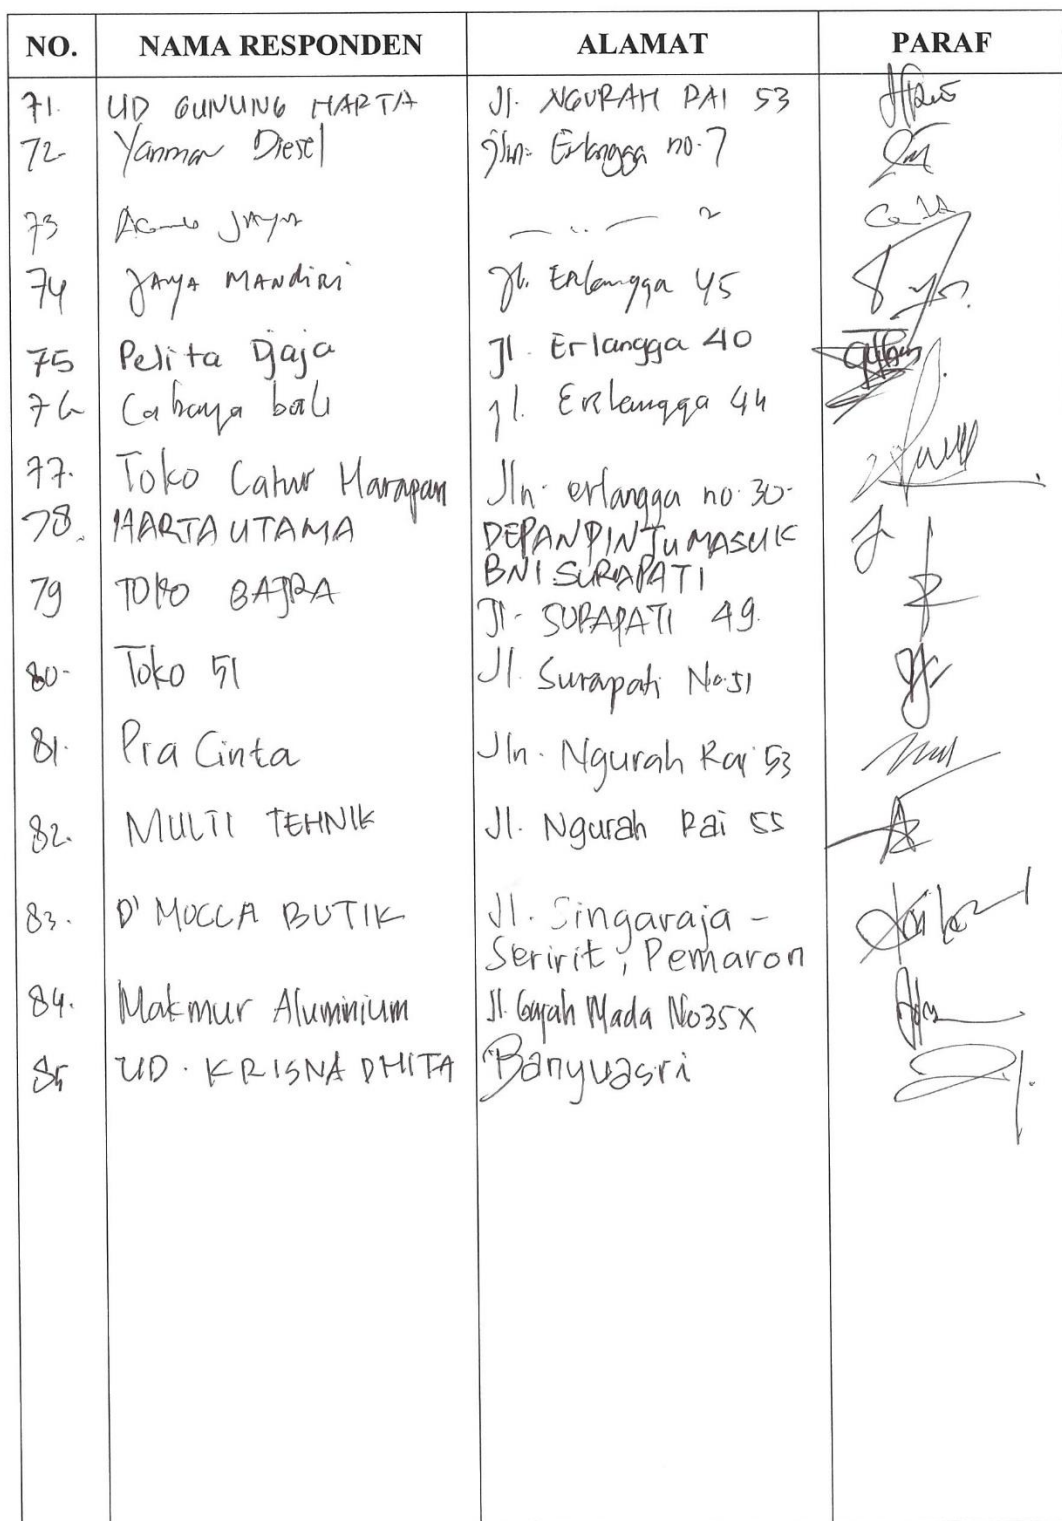 NO. NAMA RESPONDEN ALAMAT PARAF
71. UD GUNUNG HARTA Jl. NGURAH RAI 53
72. Yanmar Diesel Jln. Erlangga no. 7
73 Jaya
74 JAYA MANdiRi Jl. Erlangga 45
75 Pelita Djaja Jl. Erlangga 40
76 Cahaya bali jl. Erlangga 44
77. Toko Catur Harapan Jln. erlangga no. 30.
78. HARTA UTAMA DEPAN PINTU MASUK
BNI SURAPATI
79 TOKO BAJRA Jl. SURAPATI 49.
80. Toko 51 Jl. Surapati No. 51
81. Pra Cinta Jln. Ngurah Rai 53
82. MULTI TEHNIK Jl. Ngurah Rai 55
83. D' MOCCA BUTIK Jl. Singaraja -
Seririt, Pemaron
84. Makmur Aluminium Jl. Gajah Mada No 35X
85 UD. KRISNA DHITA Banyuasri